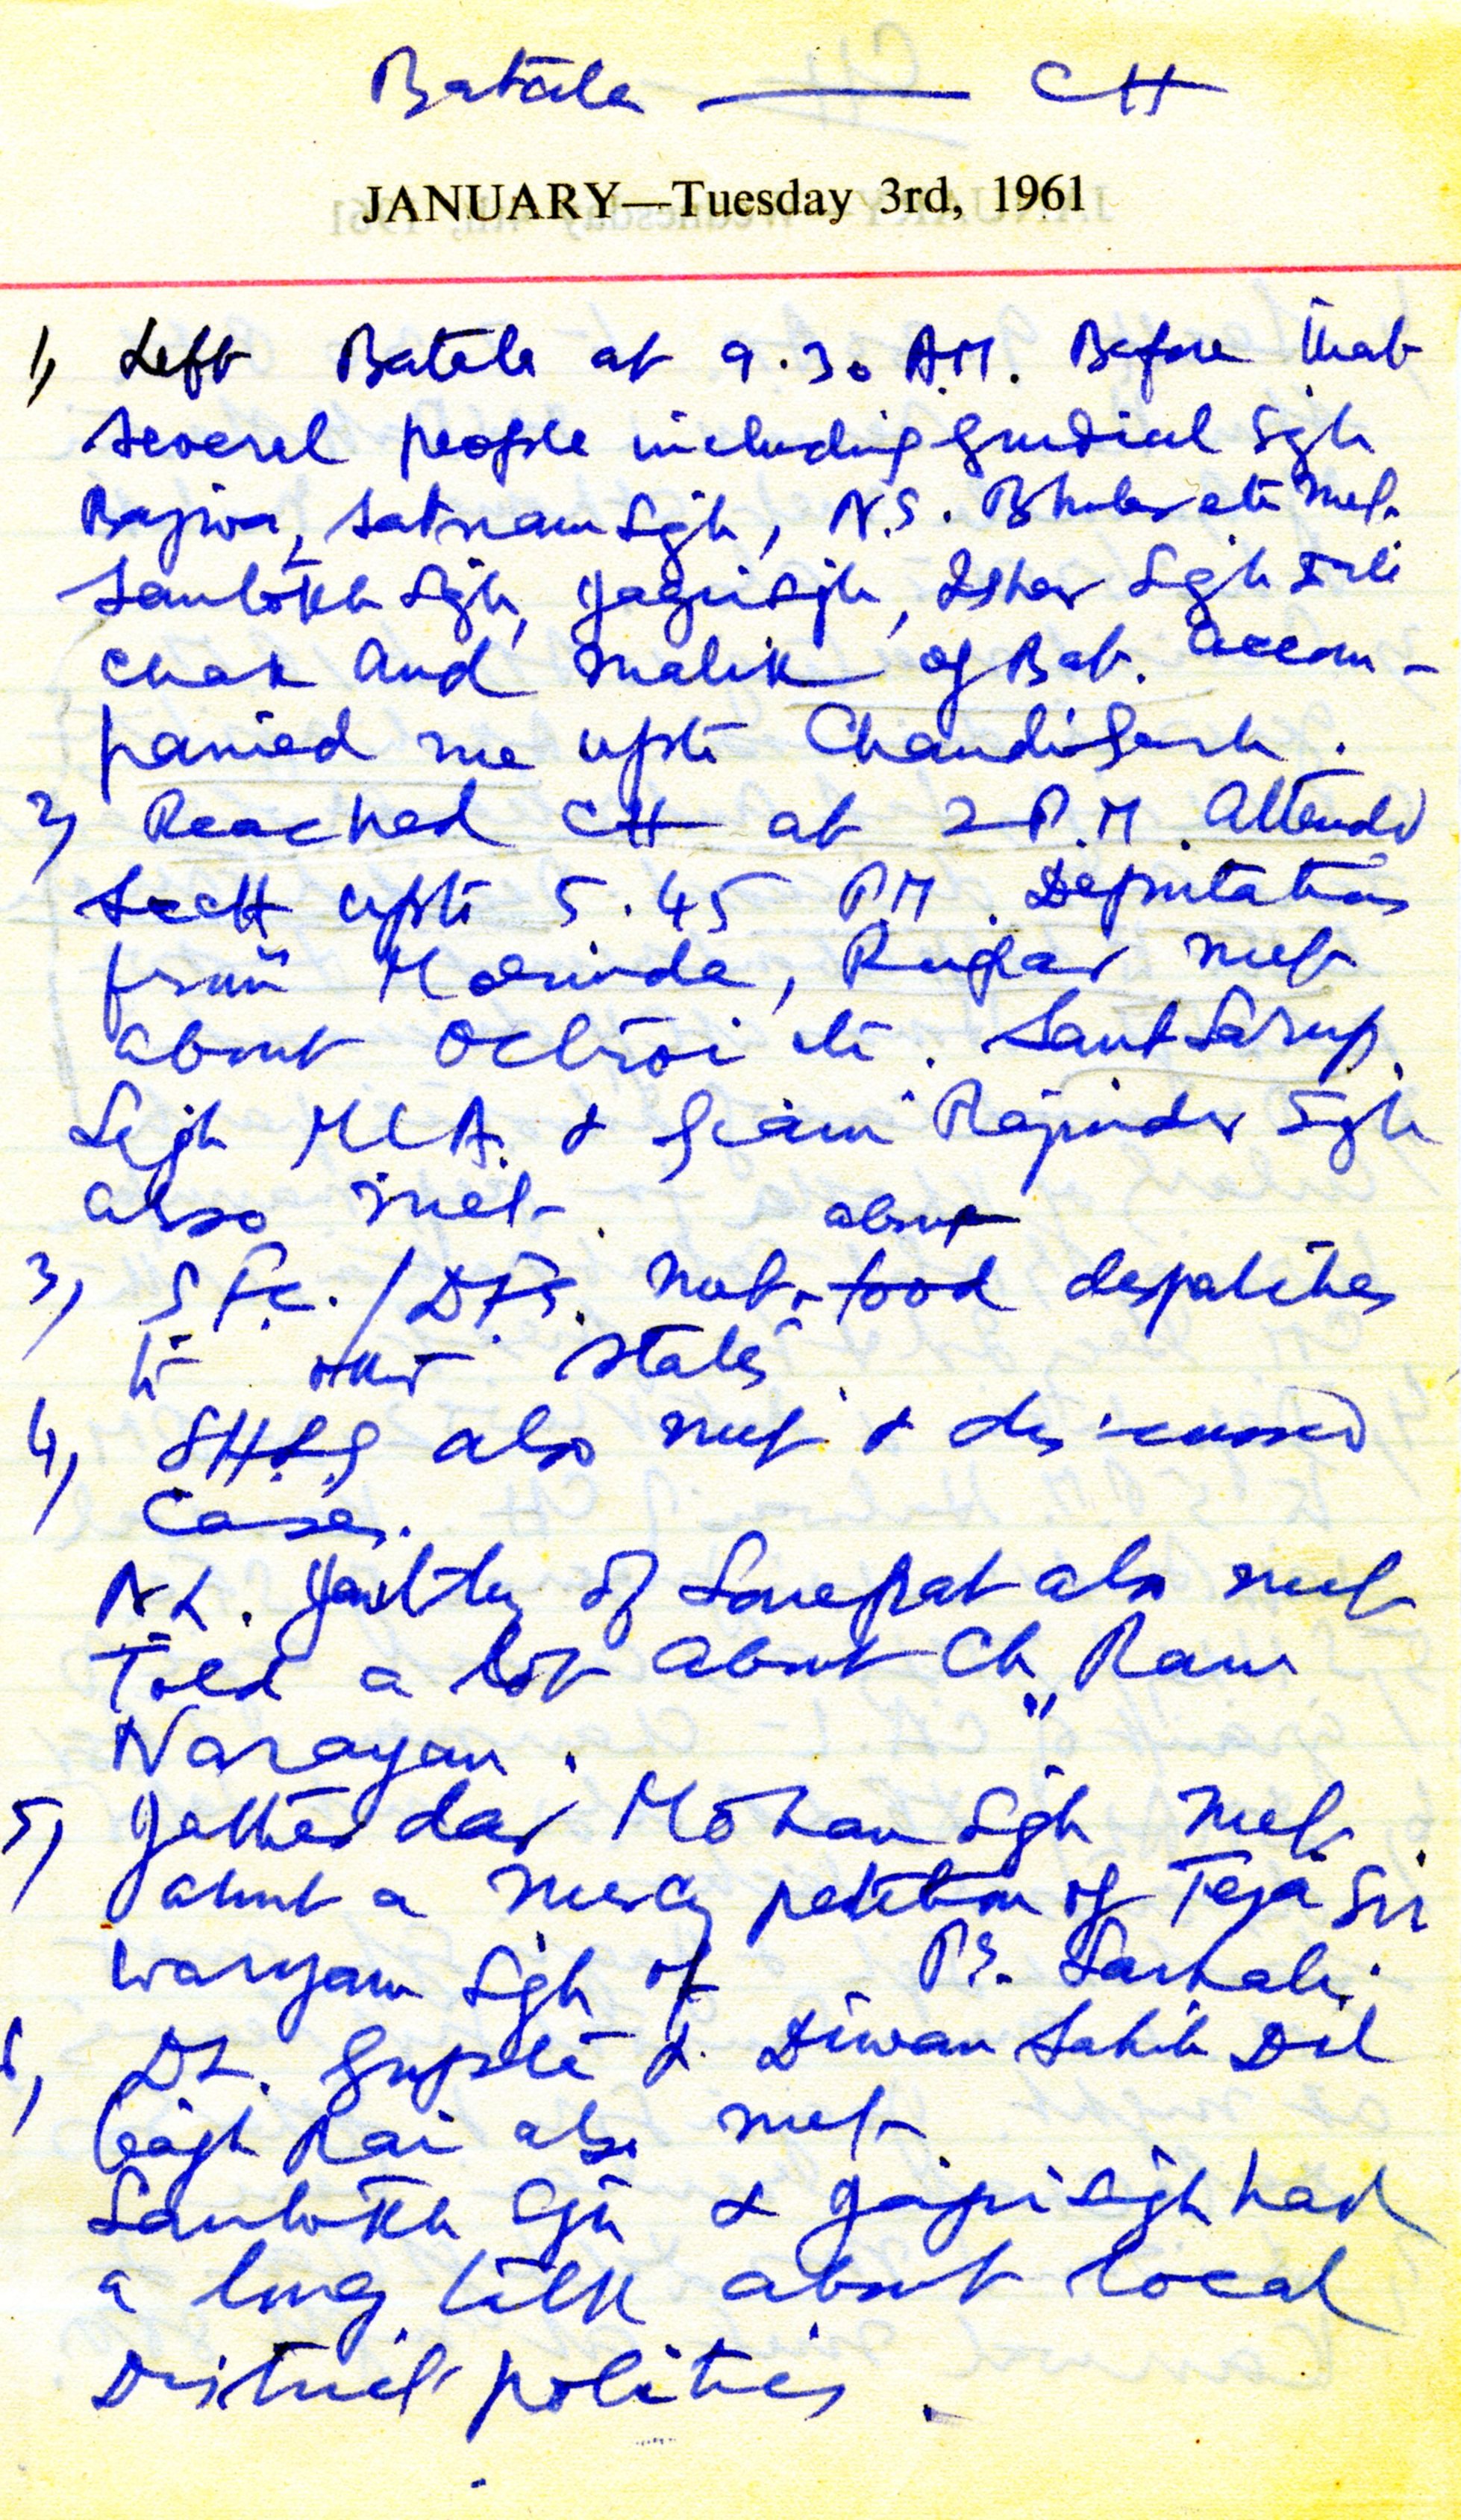 Batala — CH
JANUARY—Tuesday 3rd, 1961
1) Left Batala at 9.30 A.M. Before that
several people including Gurdial Sgh
Bajwa, Satnam Sgh, N.S. Bhuler etc met.
Santokh Sgh, Jagir Sgh, Isher Sgh
Chak and Malik of Bat. accom-
panied me upto Chandigarh.
2) Reached CH at 2 P.M. Attended
Sectt upto 5.45 P.M. Deputations
from Morinda, Rupar met
about Octroi etc. Sant Sarup
Sgh MLA. & Giani Rajinder Sgh
also met. about
3) SFc./DFS. met food despatches
to other states.
4) SHLG also met & discussed
Cases.
N.L. of Sonepat also met
Told a lot about Ch. Ram
Narayan.
5) Jathedar Mohan Sgh met.
about a mercy petition of Teja S/o
Waryam Sgh of P.S. Sarhali.
6) D.L. Gupta & Diwan Sahib Dil
bagh Rai also met
Santokh Sgh & Jagir Sgh had
a long talk about local
District politics.